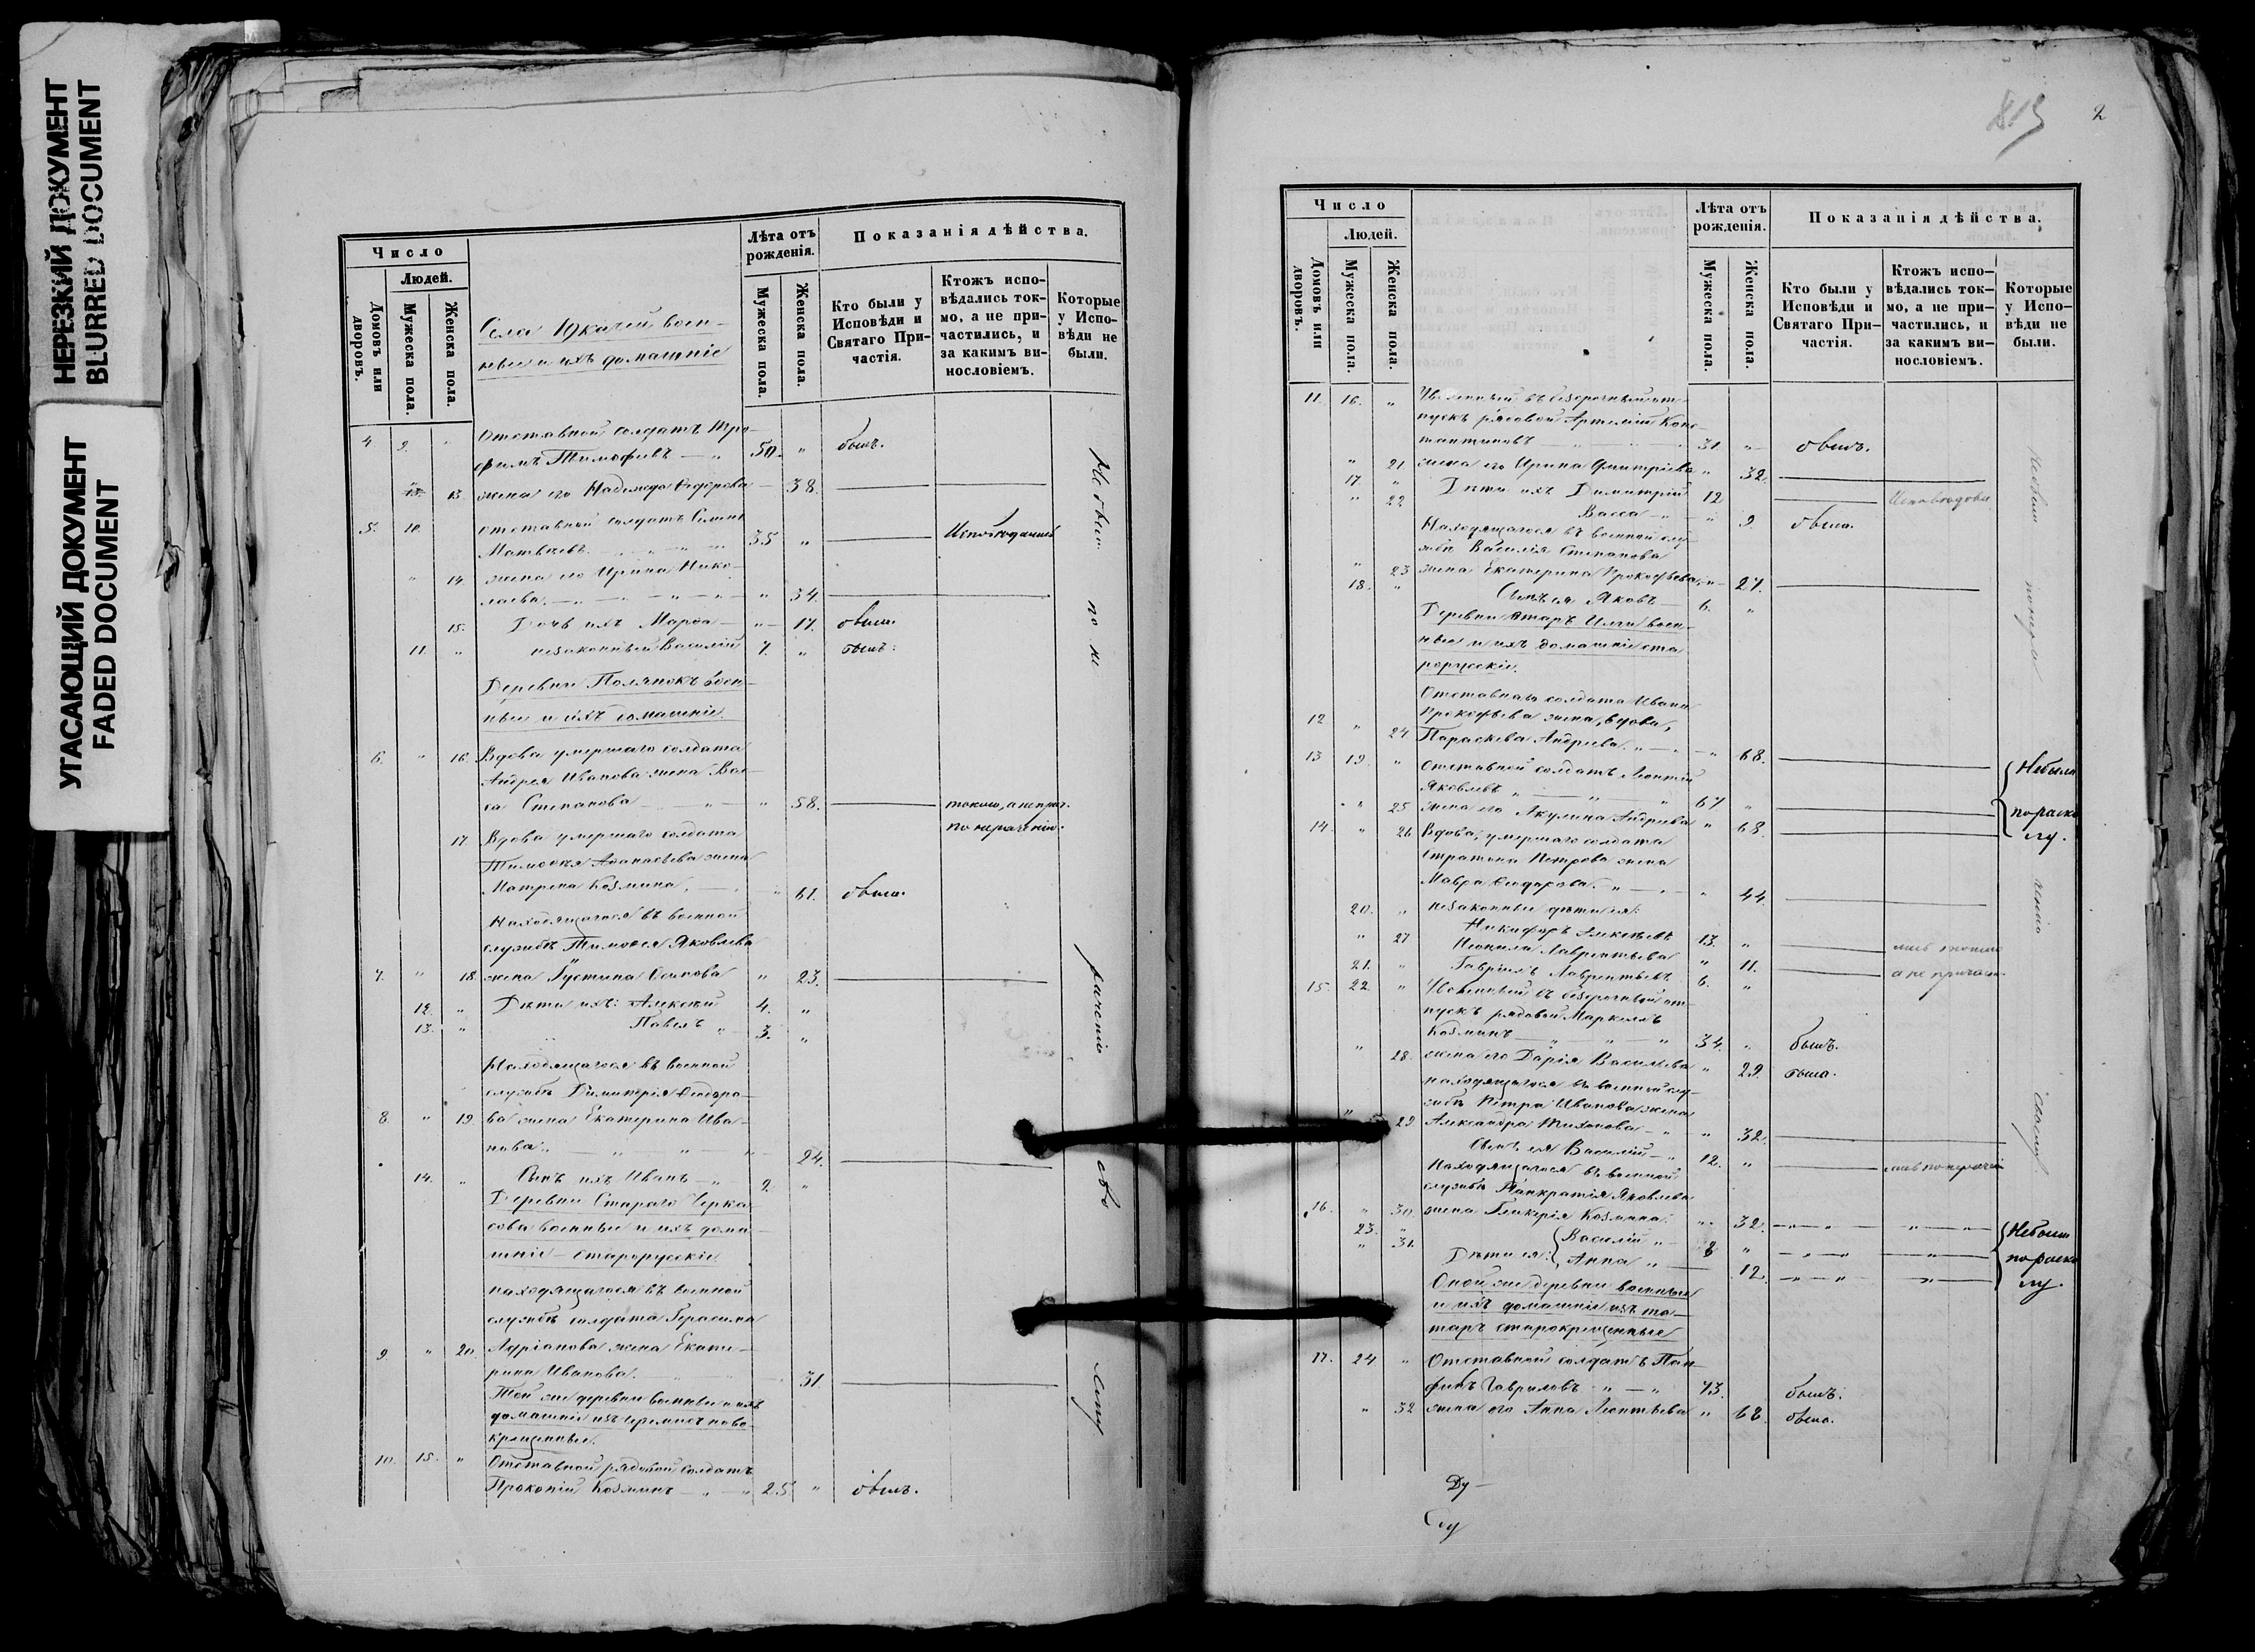 НЕРЕЗКИЙ ДОКУМЕНТ
BLURRED DOCUMENT
УГАСАЮЩИЙ ДОКУМЕНТ
FADED DOCUMENT
Число
Людей.
Домовъ или дворовъ.
Мужеска пола.
Женска пола.
Села воен-
ные и ихъ домашніе
Лѣта отъ рожденія.
Мужеска пола.
Женска пола.
Показанія дѣйства.
Кто были у Исповѣди и Святаго При-частія.
Ктожъ испо-вѣдались ток-мо, а не при-частились, и за какимъ ви-нословіемъ.
Которые у Испо-вѣди не были.
4. 9. " Отставной солдатъ Тро-
фимъ Тимофѣевъ — " 50. " былъ.
13. жена его Надежда Ѳедорова — 38.
5. 10. отставный солдатъ
Матвѣевъ 35 "
" 14. жена его Ирина Нико-
лаева " 34.
15. Дочь ихъ Марѳа — " 17. была.
11. " незаконный Василій 7. " былъ.
Деревни Полянокъ воен-
ные и ихъ домашніе.
6. " 16. Вдова умершаго солдата
Андрея Иванова жена Вас-
са Степанова — " — " 58.
по нерачению.
17 Вдова умершаго солдата
Тимоѳея Аѳанасьева жена
Матрена Козмина, — " 61. была.
Находящагося въ военной
службѣ Тимоѳея Яковлева
7. " 18. жена Іустина Осипова " 23.
12. " Дѣти ихъ: Алексѣй 4. "
13. " Павелъ " 3. "
Находящагося въ военной
службѣ Димитрія Ѳеодоро-
8. " 19. ва жена Екатерина Ива-
нова " 24.
14. " Сынъ ихъ Иванъ — " 2. "
Деревни Стараго Черка-
сова военные и ихъ дома-
шніе — старорусскіе.
находящагося въ военной
службѣ солдата Герасима
9. " 20. Адріанова жена Екате-
рина Иванова. 31.
Той же деревни военные и ихъ
домашніе изъ черемисъ ново-
крещенные.
10. 15. " Отставной рядовой солдатъ
Прокопій Козминъ — " — " 25 " былъ.
Не были по не раченію
2
Число
Людей.
Домовъ или дворовъ.
Мужеска пола.
Женска пола.
Лѣта отъ рожденія.
Мужеска пола.
Женска пола.
Показанія дѣйства.
Кто были у Исповѣди и Святаго При-частія.
Ктожъ испо-вѣдались ток-мо, а не при-частились, и за какимъ ви-нословіемъ.
Которые у Испо-вѣди не были.
11. 16. " въ безсрочный от-
пускъ рядовой Артемій Конс-
тантиновъ 31. " былъ.
" 21. жена его Ирина Димитріева " 32.
17. " Дѣти ихъ Димитрій 12
" 22 Васса — " 9. была.
Находящагося въ военной слу-
жбѣ Василія Степанова
" 23 жена Екатерина Прокофьева " 27.
18. " Сынъ ея Яковъ — 6. "
Деревни воен-
ные и ихъ домашніе ста-
рорусскіе.
Отставнаго солдата Ивана
12 " 24 Прокофьева жена, вдова,
Параскева Андреева. " — " 68.
13 19. " Отставной солдатъ Леонтій
Яковлевъ " — " 67 "
" 25. жена его Акулина Андреева " 68.
{ Небыли
по раско
лу.
14. " 26 Вдова, умершаго солдата
Стратона Петрова жена
Мавра Ѳедорова. " — " 44.
20. " незаконные дѣти ея:
Никифоръ Алексѣевъ 13. "
" 27 Неонила Лаврентьева " 11.
21. " Гавріилъ Лаврентьевъ 6. "
а не причаст.
15. 22. " въ безсрочный от-
пускъ рядовой Маркеллъ
Козминъ — " — " 34. " былъ.
" 28. жена его Дарія Васильева " 29. была.
находящагося въ военной слу-
жбѣ Петра Иванова жена
" 29. Александра Тихонова — " 32.
Сынъ ея Василій — " 12. "
Находящагося въ военной
службѣ Панкратія Яковлева
16. " 30. жена Гликерія Козмина. " 32.
23. " Дѣти ея: { Василій " — 8 "
" 31. Анна " — 12.
{ Небыли
по раско
лу.
Оной же деревни военные
и ихъ домашніе изъ та-
таръ старокрещенные
17. 24 " Отставной солдатъ Пан-
филъ Гавриловъ " — " 73. былъ.
" 32 жена его Анна Леонтьева " 68. была.
Ду —